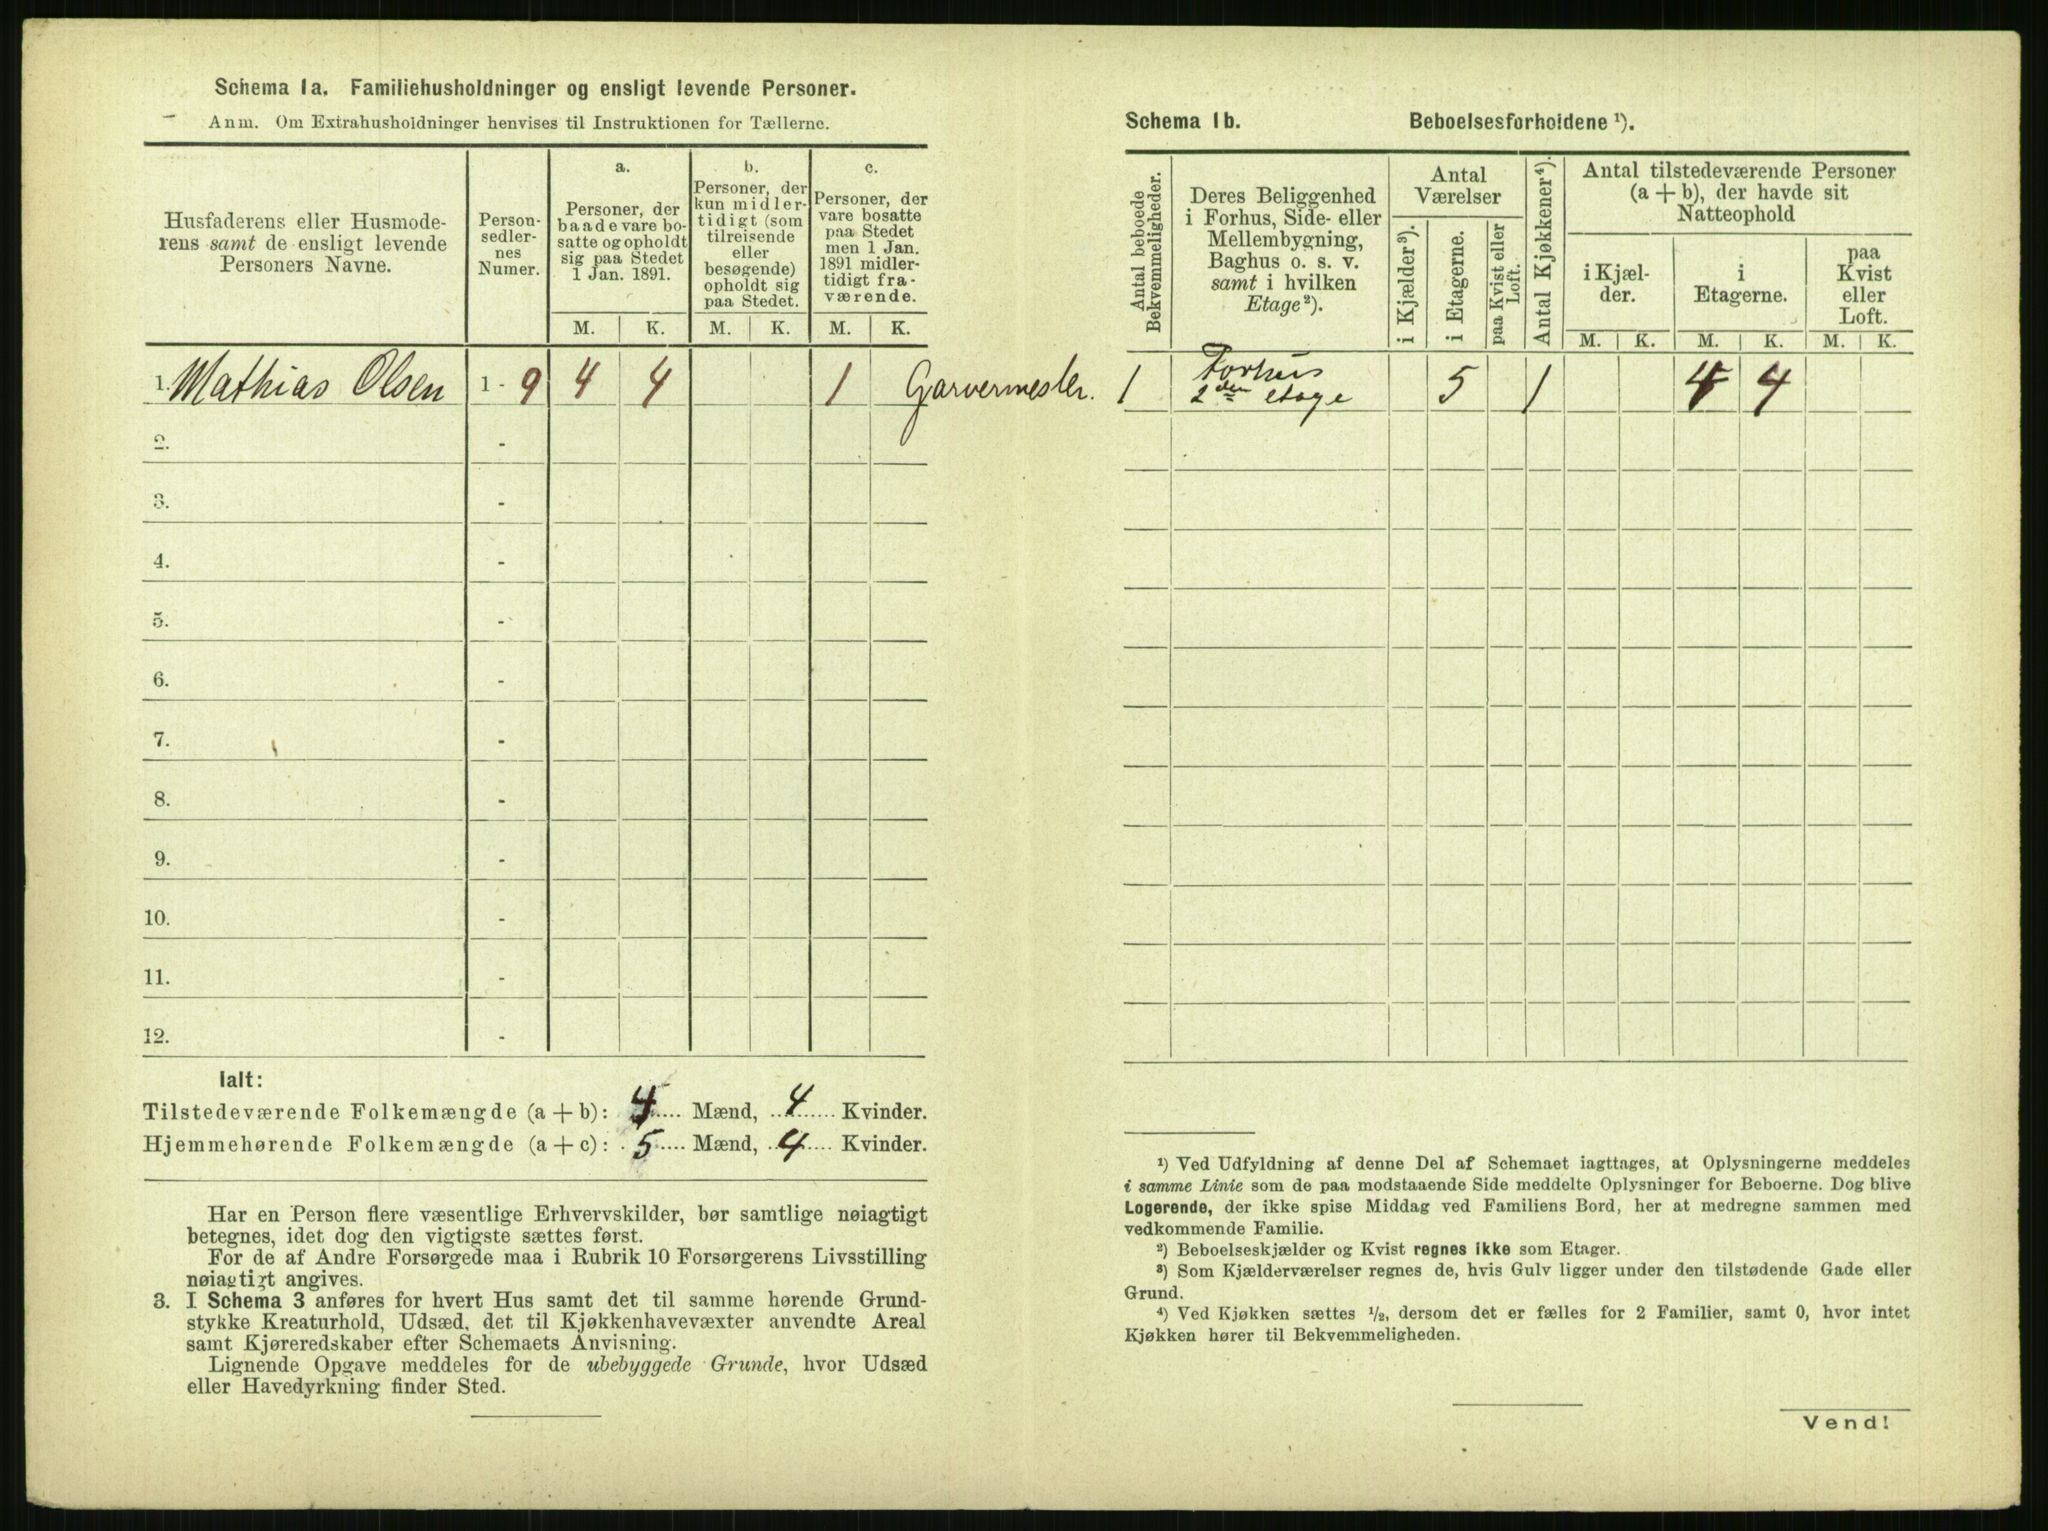 Schema 1a. Familiehusholdninger og ensligt levende Personer.
Anm. Om Extrahusholdninger henvises til Instruktionen for Tællerne.
Husfaderens eller Husmoderens samt de ensligt levende Personers Navne.
Personsedlernes Numer.
a.
Personer, der
baade vare bo-
satte og opholdt
sig paa Stedet
1 Jan. 1891.
b.
Personer, der
kun midler-
tidigt (som
tilreisende
eller
besøgende)
opholdt sig
paa Stedet.
c.
Personer, der
vare bosatte
paa Stedet
men 1 Jan.
1891 midler-
tidigt fra-
værende.
M. K. M. K. M. K.
1. Mathias Olsen 1 - 9 4 4 1 Garvermester.
2. -
3. -
4. -
5. -
6. -
7. -
8. -
9. -
10. -
11. -
12. -
Ialt:
Tilstedeværende Folkemængde (a + b): 4 Mænd, 4 Kvinder.
Hjemmehørende Folkemængde (a + c): 5 Mænd, 4 Kvinder.
Har en Person flere væsentlige Erhvervskilder, bør samtlige nøiagtigt
betegnes, idet dog den vigtigste sættes først.
For de af Andre Forsørgede maa i Rubrik 10 Forsørgerens Livsstilling
nøiagtigt angives.
3. I Schema 3 anføres for hvert Hus samt det til samme hørende Grund-
stykke Kreaturhold, Udsæd, det til Kjøkkenhavevæxter anvendte Areal
samt Kjøreredskaber efter Schemaets Anvisning.
Lignende Opgave meddeles for de ubebyggede Grunde, hvor Udsæd
eller Havedyrkning finder Sted.
Schema 1b. Beboelsesforholdene ¹).
Antal beboede
Bekvemmeligheder.
Deres Beliggenhed
i Forhus, Side- eller
Mellembygning,
Baghus o. s. v.
samt i hvilken
Etage²).
Antal
Værelser
i Kjælder³).
i Etagerne.
paa Kvist eller
Loft.
Antal Kjøkkener⁴).
Antal tilstedeværende Personer
(a + b), der havde sit
Natteophold
i Kjæl-
der.
i
Etagerne.
paa
Kvist
eller
Loft.
M. K. M. K. M. K.
1 Forhus
2den etage 5 1 4 4
¹) Ved Udfyldning af denne Del af Schemaet iagttages, at Oplysningerne meddeles
i samme Linie som de paa modstaaende Side meddelte Oplysninger for Beboerne. Dog blive
Logerende, der ikke spise Middag ved Familiens Bord, her at medregne sammen med
vedkommende Familie.
²) Beboelseskjælder og Kvist regnes ikke som Etager.
³) Som Kjælderværelser regnes de, hvis Gulv ligger under den tilstødende Gade eller
Grund.
⁴) Ved Kjøkken sættes ½, dersom det er fælles for 2 Familier, samt 0, hvor intet
Kjøkken hører til Bekvemmeligheden.
Vend!